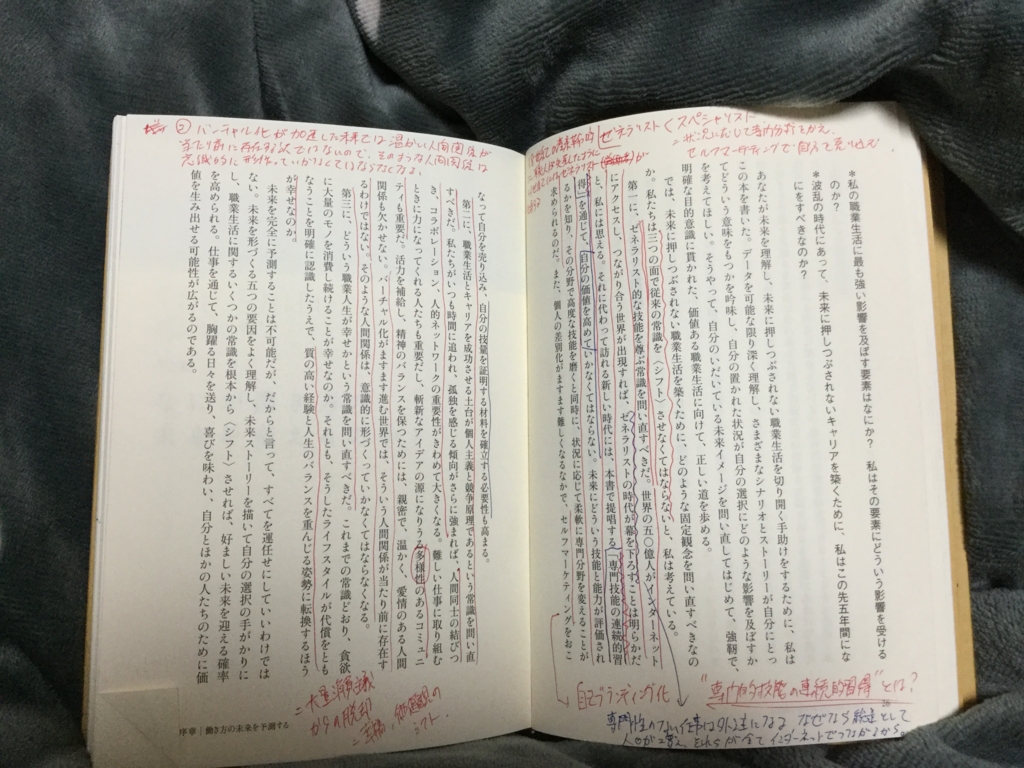 ＊私の職業生活に最も強い影響を及ぼす要素はなにか？　私はその要素にどういう影響を受ける
のか？
＊波乱の時代にあって、未来に押しつぶされないキャリアを築くために、私はこの先五年間にな
にをすべきなのか？
あなたが未来を理解し、未来に押しつぶされない職業生活を切り開く手助けをするために、私は
この本を書いた。データを可能な限り深く理解し、さまざまなシナリオとストーリーが自分にとっ
てどういう意味をもつかを吟味し、自分の置かれた状況が自分の選択にどのような影響を及ぼすか
を考えてほしい。そうやって、自分のいだいている未来イメージを問い直してはじめて、強靭で、
明確な目的意識に貫かれた、価値ある職業生活に向けて、正しい道を歩める。
では、未来に押しつぶされない職業生活を築くために、どのような固定観念を問い直すべきなの
か。私たちは三つの面で従来の常識を〈シフト〉させなくてはならないと、私は考えている。
第一に、ゼネラリスト的な技能を尊ぶ常識を問い直すべきだ。世界の五〇億人がインターネット
にアクセスし、つながり合う世界が出現すれば、ゼネラリストの時代が幕を下ろすことは明らかだ
と、私には思える。それに代わって訪れる新しい時代には、本書で提唱する「専門技能の連続的習
得」を通じて、自分の価値を高めていかなくてはならない。未来にどういう技能と能力が評価され
るかを知り、その分野で高度な技能を磨くと同時に、状況に応じて柔軟に専門分野を変えることが
求められるのだ。また、個人の差別化がますます難しくなるなかで、セルフマーケティングをおこ
なって自分を売り込み、自分の技量を証明する材料を確立する必要性も高まる。
第二に、職業生活とキャリアを成功させる土台が個人主義と競争原理であるという常識を問い直
すべきだ。私たちがいつも時間に追われ、孤独を感じる傾向がさらに強まれば、人間同士の結びつ
き、コラボレーション、人的ネットワークの重要性がきわめて大きくなる。難しい仕事に取り組む
ときに力になってくれる人たちも重要だし、斬新なアイデアの源になりうる多様性のあるコミュニ
ティも重要だ。活力を補給し、精神のバランスを保つためには、親密で、温かく、愛情のある人間
関係も欠かせない。バーチャル化がますます進む世界では、そういう人間関係が当たり前に存在す
るわけではない。そのような人間関係は、意識的に形づくっていかなくてはならなくなる。
第三に、どういう職業人生が幸せかという常識を問い直すべきだ。これまでの常識どおり、貪欲
に大量のモノを消費し続けることが幸せなのか。それとも、そうしたライフスタイルが代償をとも
なうことを明確に認識したうえで、質の高い経験と人生のバランスを重んじる姿勢に転換するほう
が幸せなのか。
未来を完全に予測することは不可能だが、だからと言って、すべてを運任せにしていいわけでは
ない。未来を形づくる五つの要因をよく理解し、未来ストーリーを描いて自分の選択の手がかりに
し、職業生活に関するいくつかの常識を根本から〈シフト〉させれば、好ましい未来を迎える確率
を高められる。仕事を通じて、胸躍る日々を送り、喜びを味わい、自分とほかの人たちのために価
値を生み出せる可能性が広がるのである。
序章｜働き方の未来を予測する
28
ゼネラリスト＜スペシャリスト
＝状況に応じて専門分野をかえ、
セルフマーケティングで自分を売り込む
② バーチャル化が加速した未来では温かい人間関係が
当たり前に存在するわけではないので、そのような人間関係は
意識的に形作っていかなくてはならなくなる。
＝大量消費主義
からの脱却
自己ブランディング化
"専門的技能の連続的習得"とは？
専門性のない仕事は外注になる なぜなら総意として